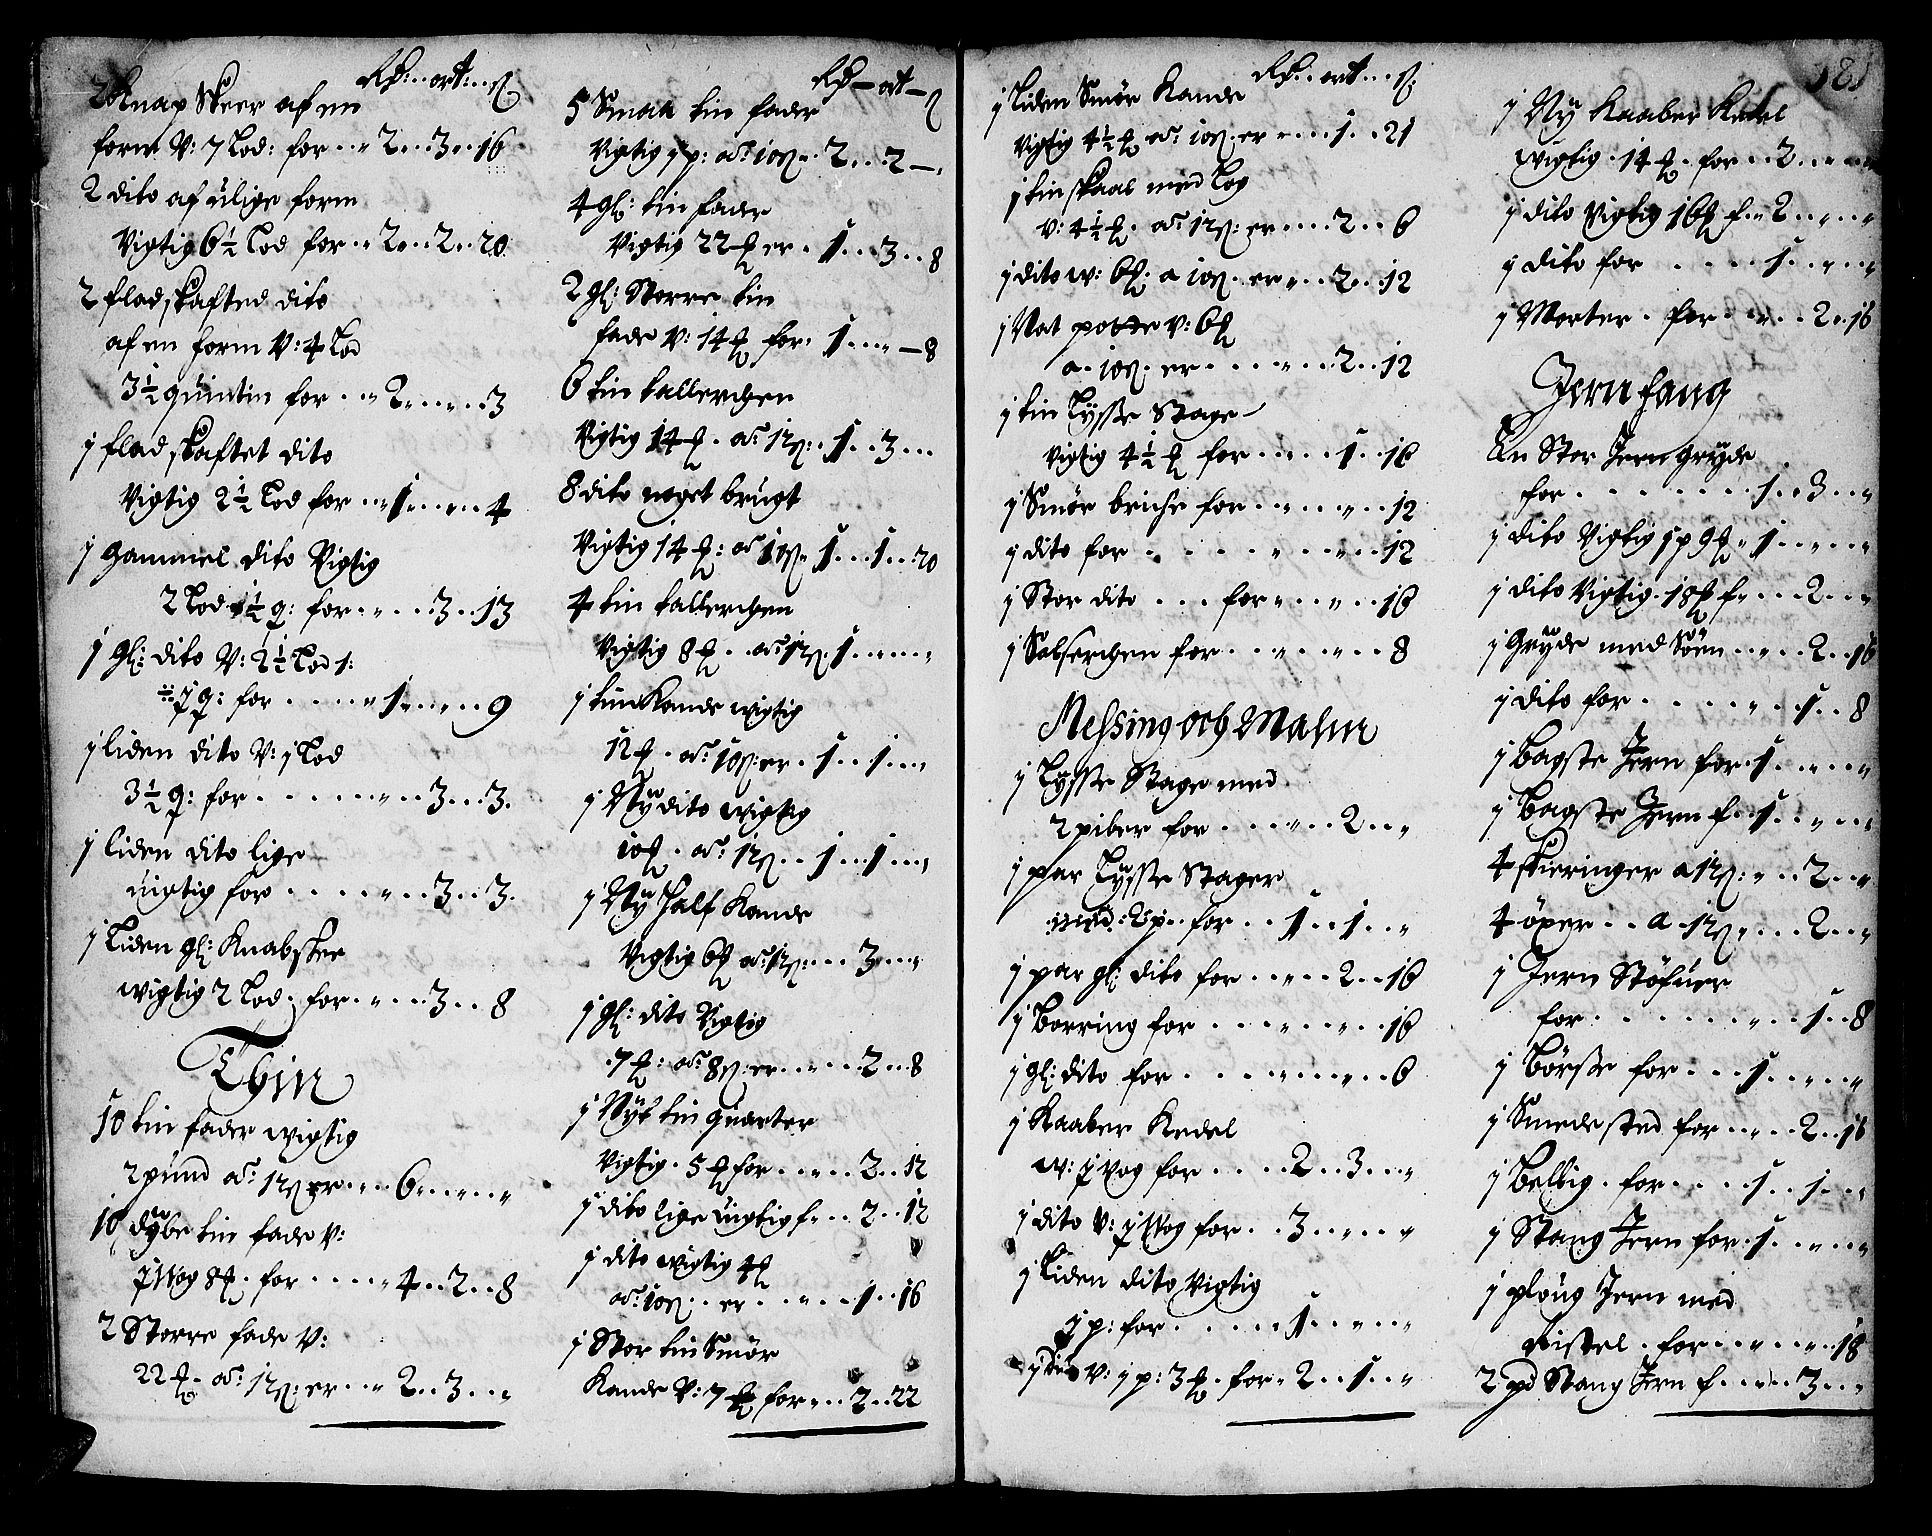 Rd: ort: ß
2 Knap Skeer af en
form V: 7 Lod: for „ 2 „ 3 „ 16
2 dito af ulige form
Vigtig 6½ Lod for „ 2 „ 2 „ 20
2 fladskafted dito
af en form V: 4 Lod
3½ quintin for „ 2 „ „ 3
j fladskaftet dito
Vigtig 2½ Lod for „ 1 „ „ 4
j gammel dito Vigtig
2 Lod ½ q: for „ 3 13
j gl: dito V: 2½ Lod
÷ j q: for „ 1 „ „ 9
j liden dito V: j Lod
3½ q: for „ 3 3
j liden dito lige
vigtig for „ 3 3
j Liden gl: Knabskee
wigtig 2 Lod for „ 3 8
Thin
10 tin fader wigtig
2 pund ad 12 ß er 6 „ „
10 dÿbe tin fade V:
j Wog 8 ℔ for 4 2 8
2 Storre fade V:
22 ℔ ad 12 ß: er 2 3 „
Rd ort ß
5 Smaa tin fader
Vigtig j p: ad 10 ß „ 2 2 –
4 gl: tin fade
Vigtig 22 ℔ er 1 3 8
2 gl: Storre tin
fade V: 14 ℔ for 1 „ 8
6 tin tallerchen
Vigtig 14 ℔ ad 12 ß: 1 3
8 dito noget brugt
Vigtig 14 ℔: ad 10 ß 1 1 20
4 tin tallerchen
Vigtig 8 ℔ ad 12 ß 1 „ „
j tin Kande wigtig
12 ℔ ad 10 ß: er 1 1 „
j Nÿ dito wigtig
10 ℔ ad 12 ß 1 1 „
j Nÿ Half Kande
Vigtig 6 ℔ ad 12 ß: 3 „
j gl: dito Vigtig
7 ℔: ad 8 ß: er „ 2 8
j Nÿt tin quarter
Vigtig 5 ℔ for „ 2 12
j dito lige vigtig f „ 2 12
j dito wigtig 4 ℔
ad 10 ß er „ 1 16
j Stor tin Smør
Kande V: 7 ℔ for „ 2 22
Rd: ort: ß
j Liden Smør Kande
Vigtig 4½ ℔ ad 10 ß er „ 1 21
j tin skaal med Log
V: 4½ ℔ ad 12 ß: er 2 6
j dito w: 6 ℔ a 10 ß er „ 2 12
j Nat potte V: 6 ℔
a 10 ß er „ 2 12
j tin Lysse Stage
Vigtig 4½ ℔ for „ 1 16
j Smør briche for „ „ 12
j dito for „ „ 12
j Stor dito for „ „ 16
j Salserchen for „ „ 8
Messing och Malm
j Lysse Stage med
2 piber for „ 2 „
j par Lysse Stager
med 2 p for 1 1 „
j par gl: dito for „ 2 16
j Borring for „ „ 16
j gl: dito for „ „ 6
j Kaaber Kedel
w: j vog for 2 3 „
j dito V: j Wog for 3 „ „
j Liden dito Vigtig
j p: for 1 „ „
j dito V: j p: 3 ℔ for „ 2 1 „
j Ny Kaaber Kedel
wigtig 14 ℔ for 2 „ „
j dito Vigtig 16 ℔ f 2 „ „
j dito for 1 „ „
j Morter for „ 2 16
Jern fang
En Stor Jern gryde
for 1 3 „
j dito Vigtig j p 9 ℔ 1 „ „
j dito Vigtig 18 ℔ f „ 2 „
j Gryde med Söen „ 2 16
j dito for „ 1 8
j Bagste Jern for 1 „ „
j Bagste Jern f 1 „ „
4 skieringer a 12 ß: „ 2 „
4 öxer a 12 ß „ 2 „
j Jern Stöfuer
for „ 1 8
j Börsse for 1 „ „
j Smedested for „ 2 16
j Belbig for 1 1 „
j Stang Jern for 1 „ „
j ploug Jern med
Ristel for „ „ 18
2 pd Stang Jern f „ 3 „